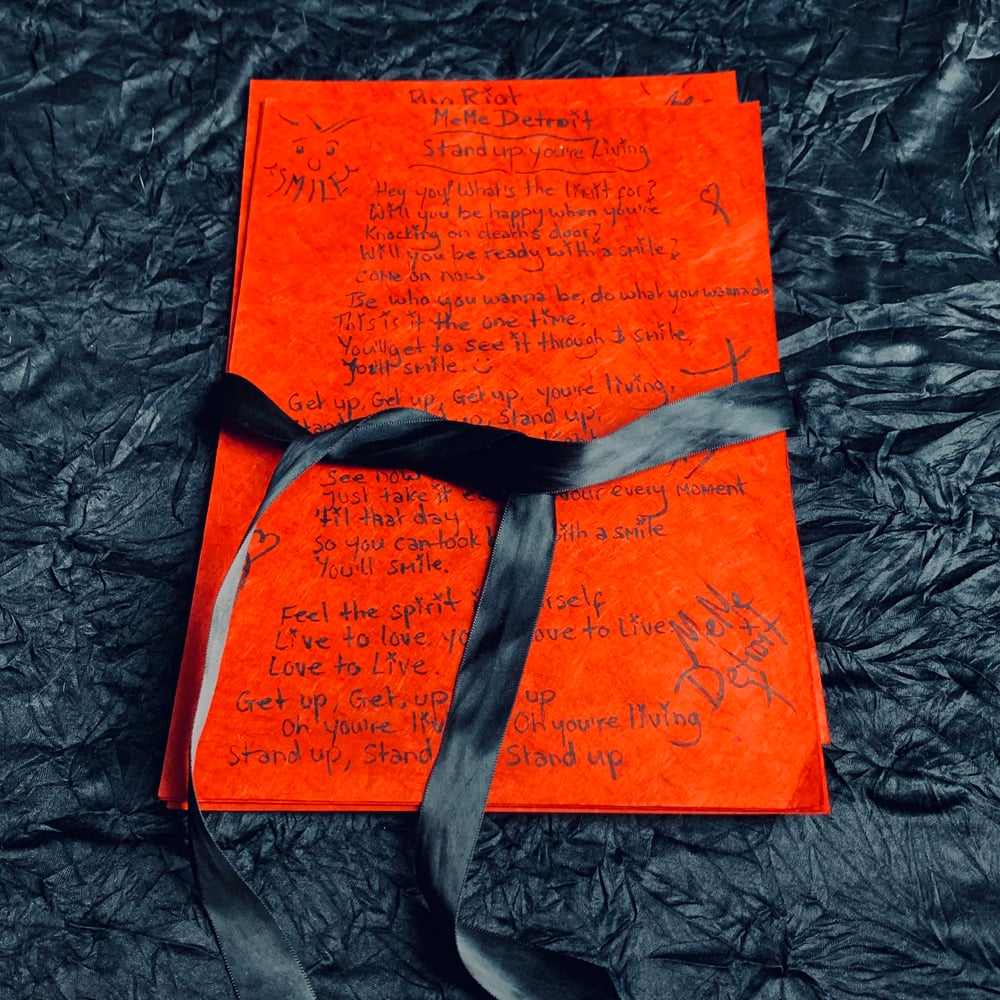 Riot
MeMe Detroit
Stand up you're Living
SMILE
Hey you! What's the limit for?
Will you be happy when you're
Knocking on death's door?
Will you be ready with a smile?
come on now
Be who you wanna be, do what you wanna do
This is it the one time,
You'll get to see it through & smile
You'll smile.
Get up, Get up, Get up, you're living,
Stand up,
See now
Just take it your every MOMENT
'til that day
So you can look with a smile
You'll smile.
Feel the spirit
Live to love, love to Live
Love to Live.
Get up, Get, up up
Oh you're Oh you're living
Stand up, Stand Stand up
MeMe
Detroit
X